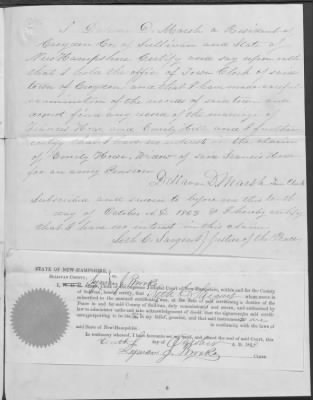 I Duman D. Marsh a Resident of
Croydon Co. of Sullivan and State of
New Hampshire Certify and say upon oath
that I hold the office of Town Clerk of said
town of Croydon and that I have made careful
examination of the records of said town and
cannot find any record of the marriage of
Francis and Emily and I further
certify that I have no interest in the claim
of Emily widow of said Francis
for an army Pension
D. Marsh Town Clerk
Subscribed and sworn to before me this
day of October A D 1863 & I hereby certify
that I have no interest in this claim
Seth C. Sargent Justice of the Peace
STATE OF NEW-HAMPSHIRE,
SULLIVAN COUNTY,
Clerk of the Supreme Judicial Court of New-Hampshire, within and for the County
of Sullivan, hereby certify, that Seth C. Sargent whose name is
subscribed to the annexed was, at the date of said certificate a Justice of the
Peace in and for said County of Sullivan, duly commissioned and sworn, and authorized by
law to administer oaths and take acknowledgment of deeds that the signature
in conformity with the laws of
said State of New-Hampshire.
In testimony whereof, I have hereunto set my hand, and affixed the seal of said Court, this
day of October A. D. 186
Lyman J. Brooks CLERK.